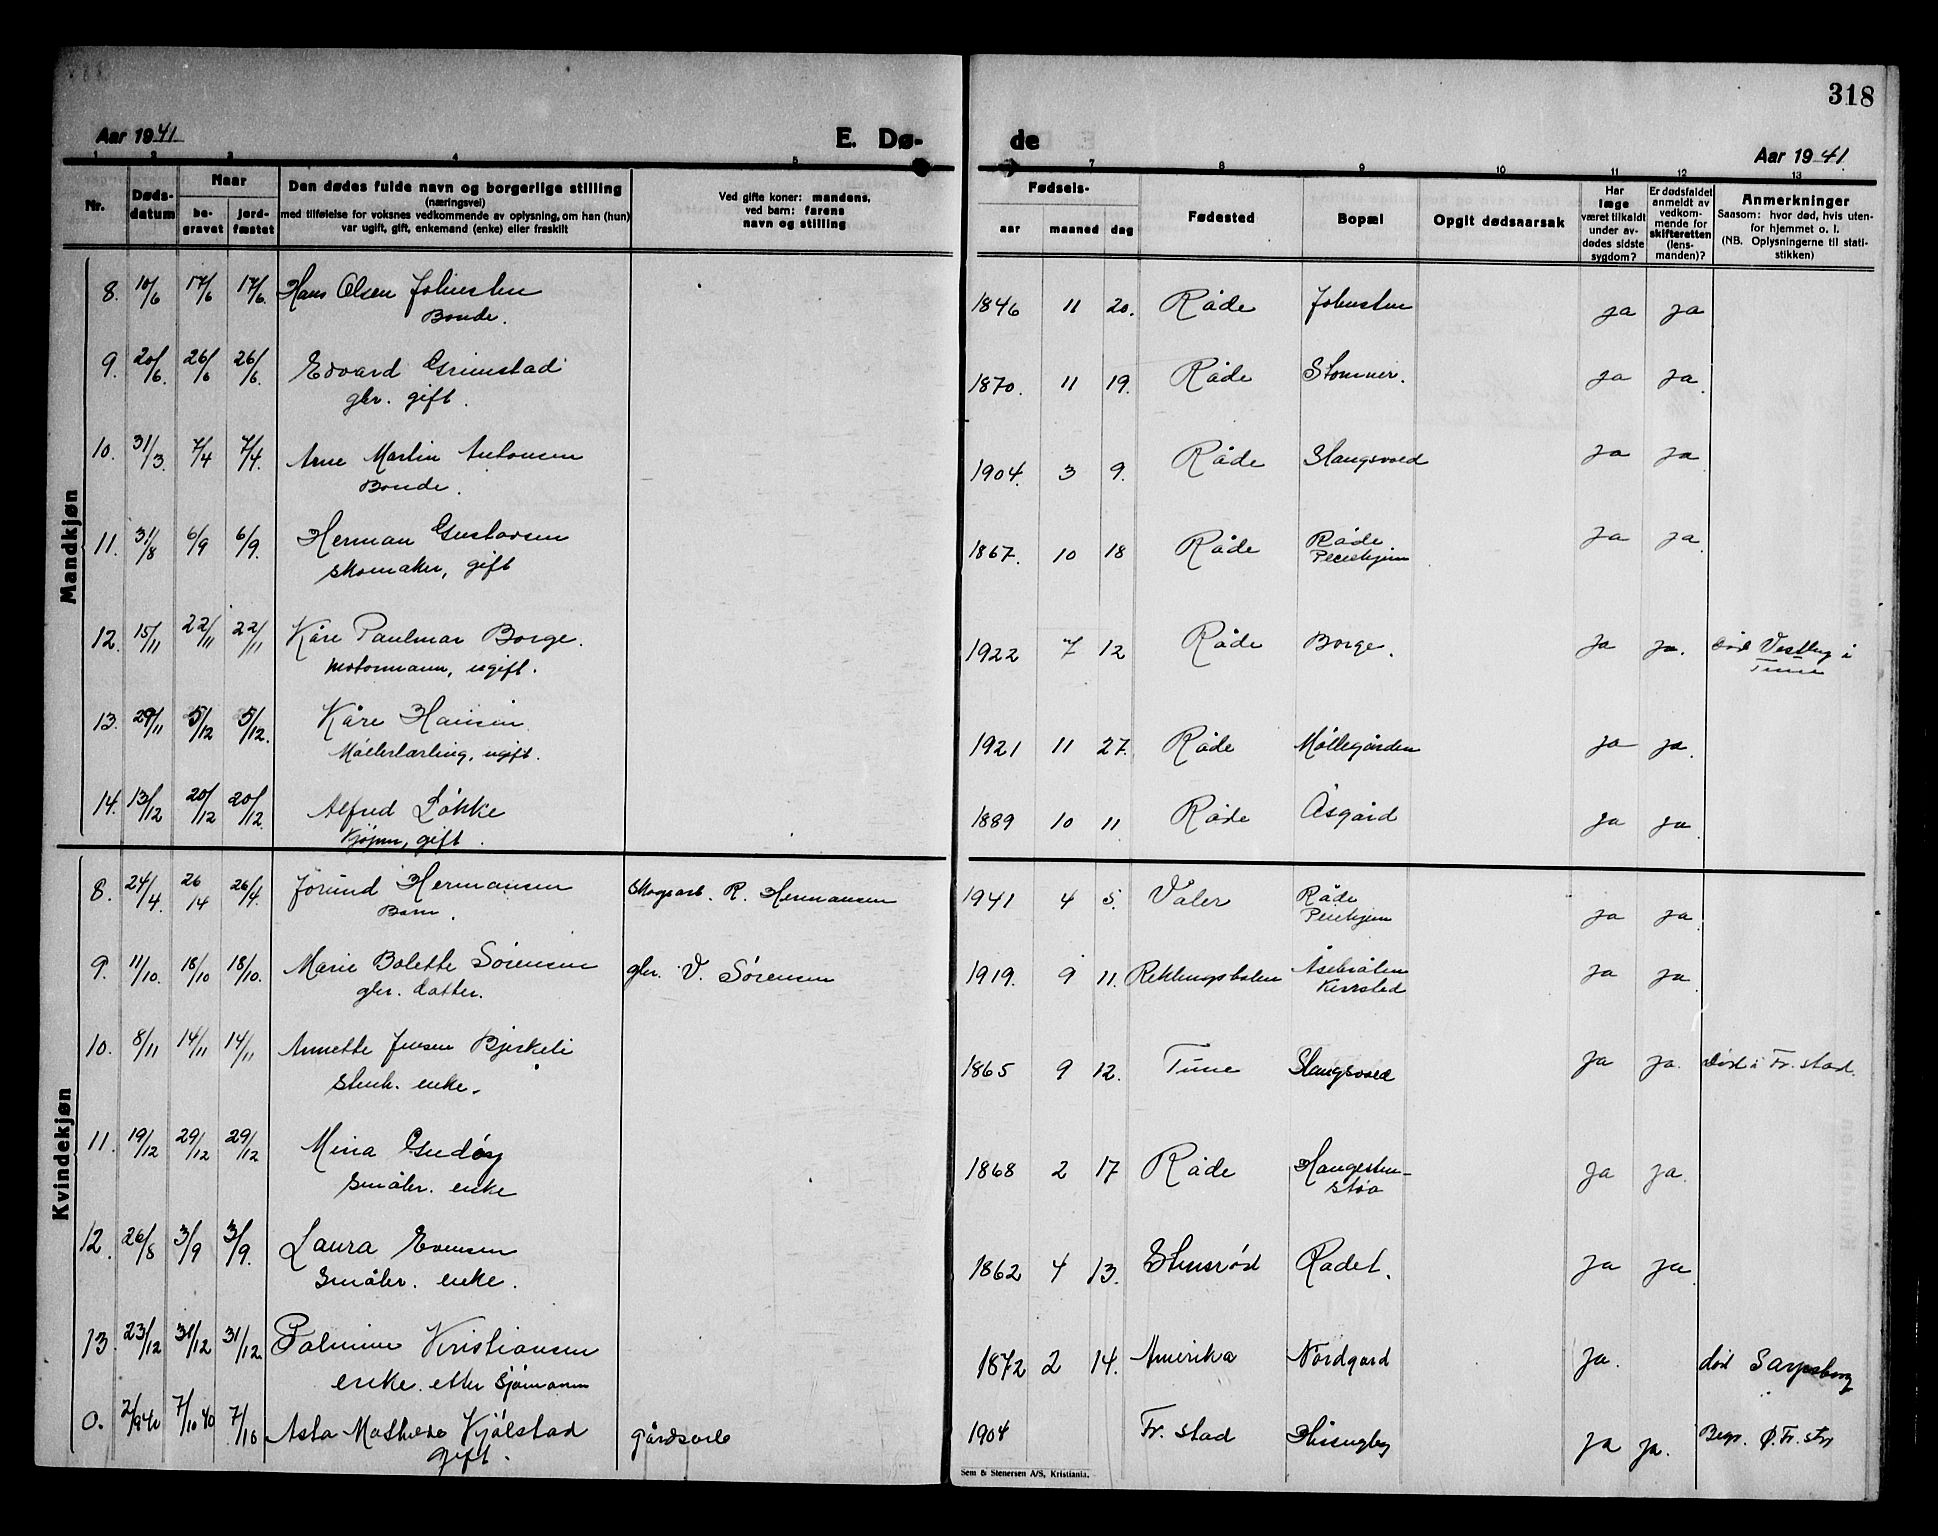 318
Aar 1941
E. Dø-
de
Aar 1941
1 2 3 4 5 7 8 9 10 11 12 13
Nr.
Døds-
datum
Naar
be-
gravet
jord-
fæstet
Den dødes fulde navn og borgerlige stilling
(næringsvei)
med tilføielse for voksnes vedkommende av oplysning, om han (hun)
var ugift, gift, enkemand (enke) eller fraskilt
Ved gifte koner: mandens,
ved barn: farens
navn og stilling
Fødsels-
aar maaned dag
Fødested
Bopæl
Opgit dødsaarsak
Har
læge
været tilkaldt
under av-
dødes sidste
sygdom?
Er dødsfaldet
anmeldt av
vedkom-
mende for
skifteretten
(lens-
manden)?
Anmerkninger
Saasom: hvor død, hvis uten-
for hjemmet o. l.
(NB. Oplysningerne til stati-
stikken)
Mandkjøn
8. 10/6 17/6 17/6. Hans Olsen Johnsten 1846 11 20. Råde Johnsten ja ja
Bonde.
9. 20/6. 26/6 26/6. Edvard Grimstad 1870. 11 19. Råde Stomner. ja ja
gbr. gift.
10. 31/3. 7/4 7/4. Arne Martin Antonsen 1904. 3 9. Råde Slangsvold ja ja
Bonde.
11. 31/8 6/9 6/9. Herman Gustavsen 1867. 10 18 Råde Råde ja ja
skomaker, gift Pleiehjem
12. 15/11 22/11 22/11 Kåre Paulmar Borge. 1922 7 12 Råde Borge. ja ja. død Vestby i
motormann, ugift. Tune
13. 29/11 5/12 5/12. Kåre Hansen 1921 11 27. Råde Møllegården ja ja
Møllerlærling, ugift.
14. 13/12 20/12 20/12. Alfred Løkke 1889 10 11 Råde Åsgård ja ja
Kjøpm, gift.
Kvindekjøn
8. 24/4. 26/4 26/4. Jorund Hermansen Skogsarb. R. Hermansen 1941 4 5. Våler Råde ja ja
Barn. Pleiehjem
9. 11/10. 18/10 18/10. Marie Bolette Sørensen gbr. V. Sørensen 1919. 9 11. ja ja
gbr. datter. Karrstad
10. 8/11 14/11 14/11 Annette Jensen Bjerkeli 1865 9 12. Tune Slangsvold ja ja. død i Fr. stad.
enke.
11. 19/12 29/12 29/12 Mina Gudøy 1868 2 17 Råde Haugesten- ja ja
Småbr. enke støa
12. 26/8 3/9 3/9. Laura Evensen 1862 4 13. Stensrød Rødet. ja ja
Småbr. enke.
13. 23/12 31/12 31/12 Palmine Kristiansen 1872 2 14. Amerika Nordgard ja. død Sarpsborg
enke. etter Sjømann
0. 2/9 40 7/10 40 7/10 Asta Mathilde Kjølstad gårdseile 1904 Fr. stad Missingby ja ja. Begr. Ø. Fr. std
gift.
Sem & Stenersen A/S, Kristiania.